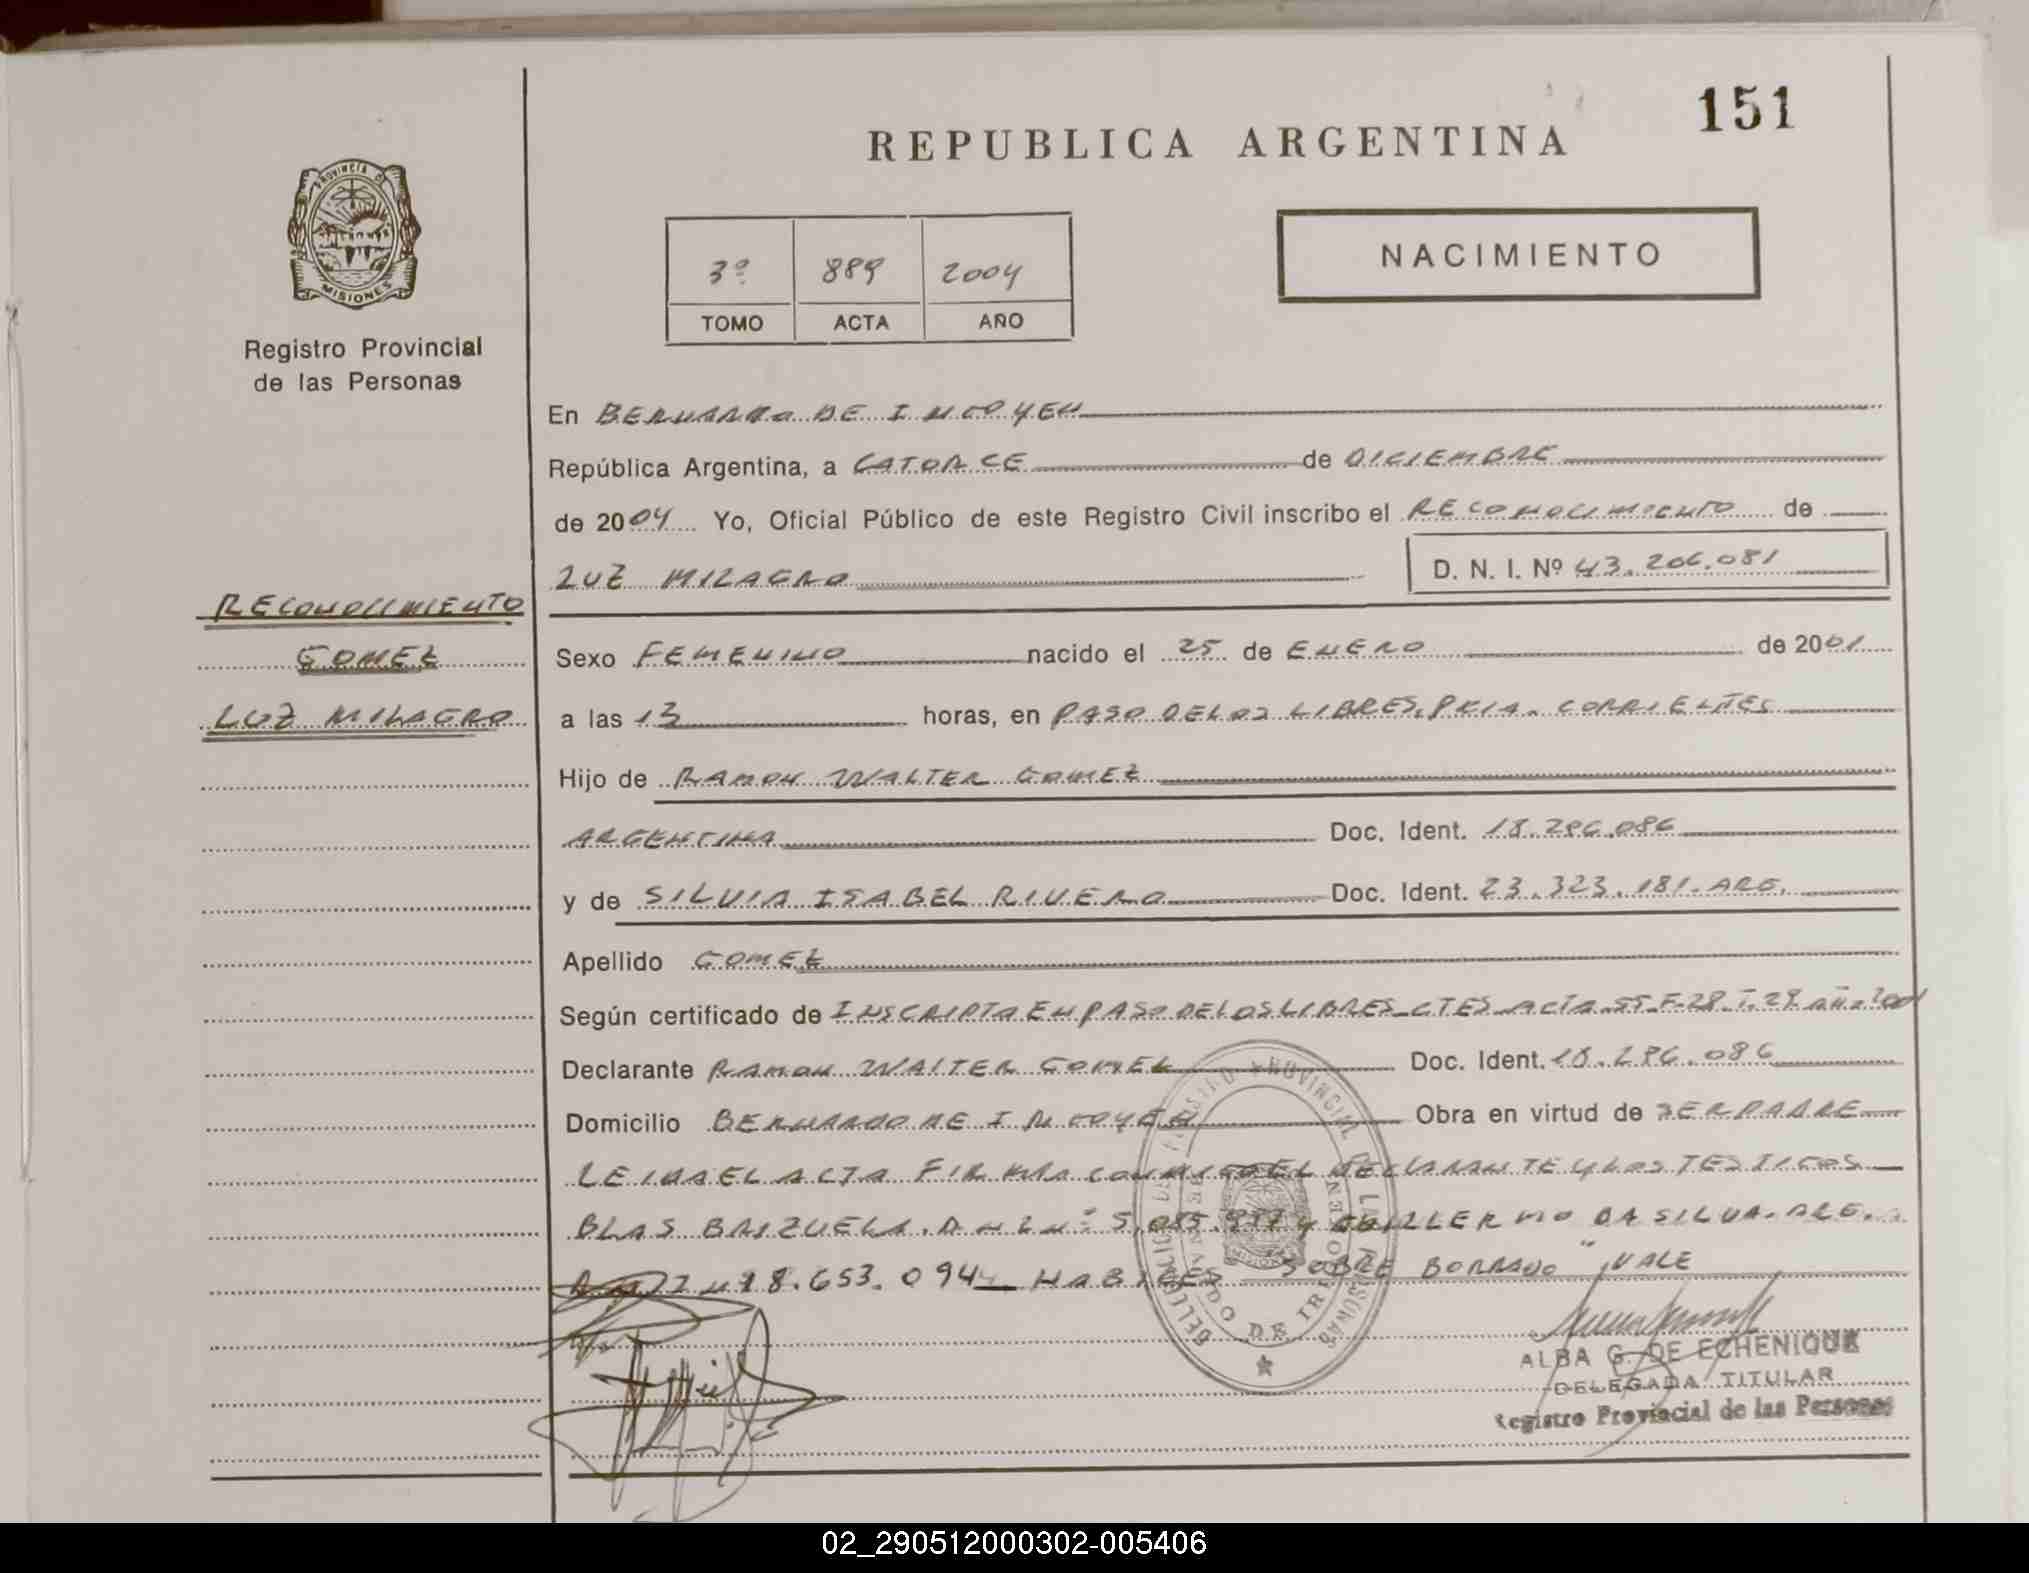 151
REPUBLICA ARGENTINA
PROVINCIA DE
MISIONES
Registro Provincial
de las Personas
3º 889 2004
TOMO ACTA AÑO
NACIMIENTO
En BERNARDO DE IRIGOYEN
República Argentina, a CATORCE de DICIEMBRE
de 2004 Yo, Oficial Público de este Registro Civil inscribo el RECONOCIMIENTO de
LUZ MILAGRO D. N. I. Nº 43.206.081
RECONOCIMIENTO
GOMEZ
LUZ MILAGRO
Sexo FEMENINO nacido el 25 de ENERO de 2001
a las 13 horas, en PASO DE LOS LIBRES, PCIA. CORRIENTES
Hijo de RAMON WALTER GOMEZ
ARGENTINA Doc. Ident. 18.296.086
y de SILVIA ISABEL RIVERO Doc. Ident. 23.323.181. ARG.
Apellido GOMEZ
Según certificado de INSCRIPTA EN PASO DE LOS LIBRES-CTES-ACTA-55-F-28-T-29 AÑO 2001
Declarante RAMON WALTER GOMEZ Doc. Ident. 18.296.086
Domicilio BERNARDO DE IRIGOYEN Obra en virtud de SER PADRE
LEIDA EL ACTA FIRMA CONMIGO EL DECLARANTE Y LOS TESTIGOS
BLAS BRIZUELA. D N I Nº 5.085. Y GUILLERMO DA SILVA. ARG.
DNI Nº 18.653.094 HABILES SOBRE BORRADO " VALE
ALBA G. DE ECHENIQUE
DELEGADA TITULAR
Registro Provincial de las Personas
02_290512000302-005406